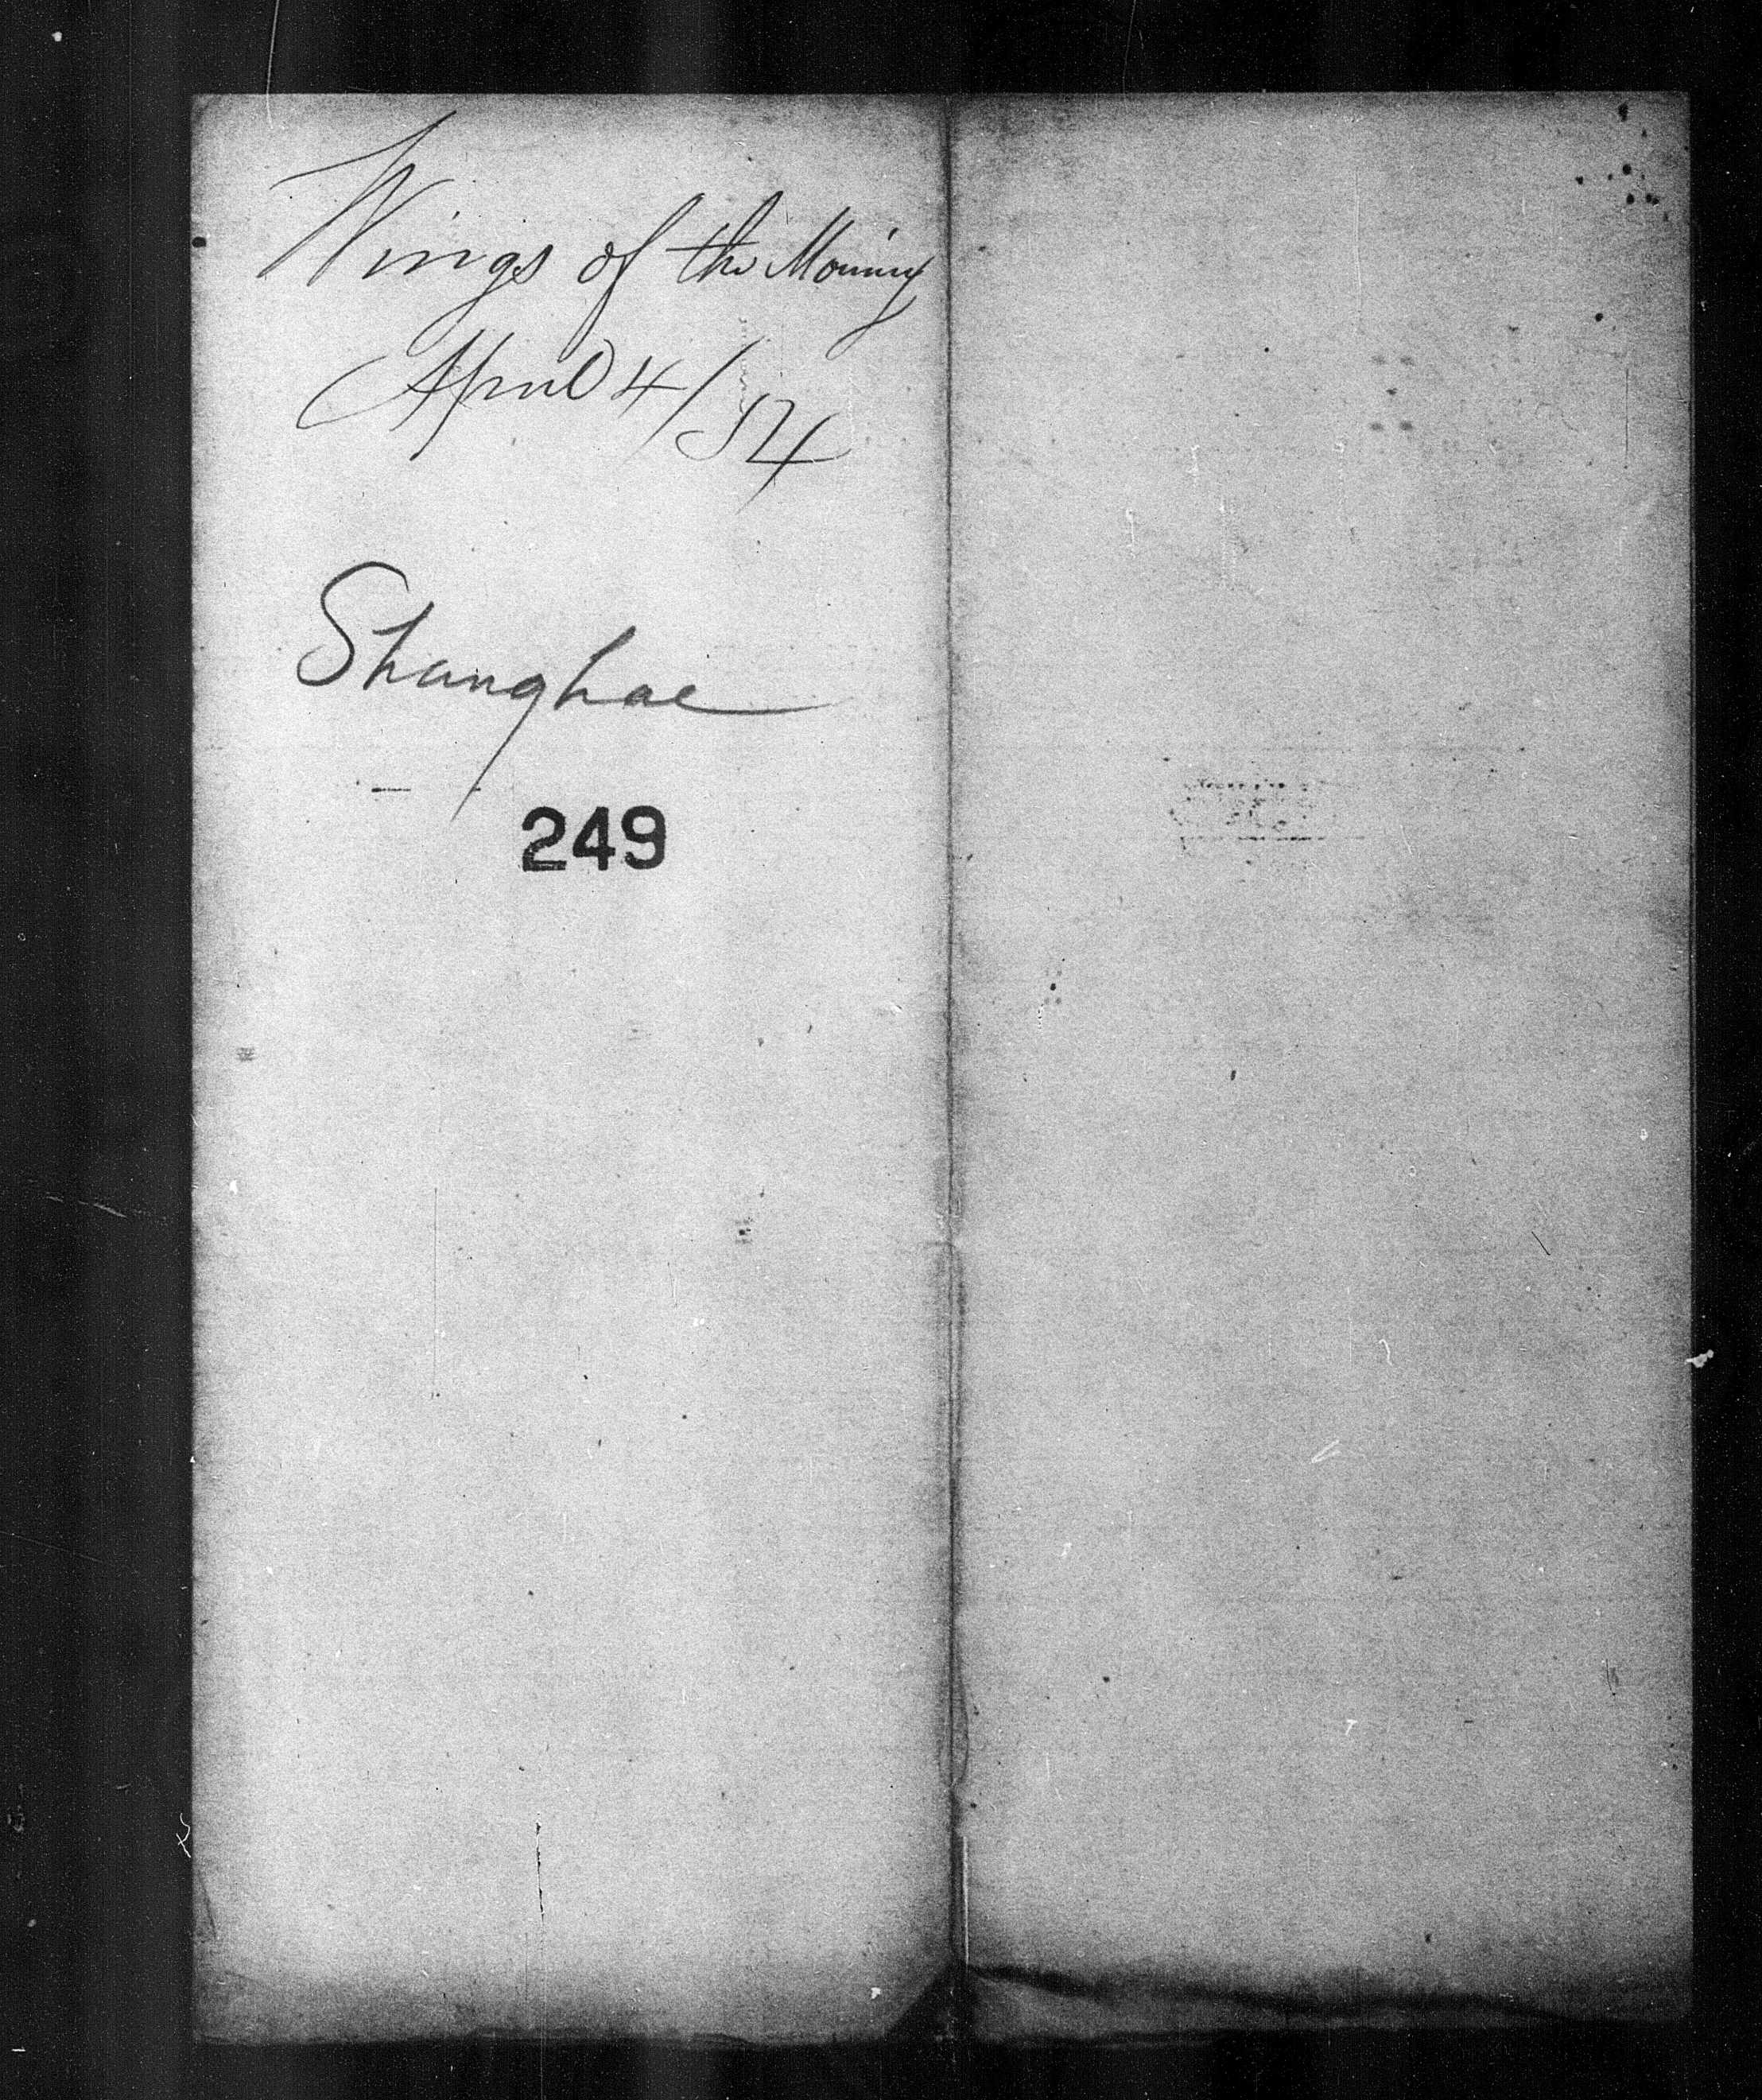 Wings of the Morning
April 4/54
Shanghae
249